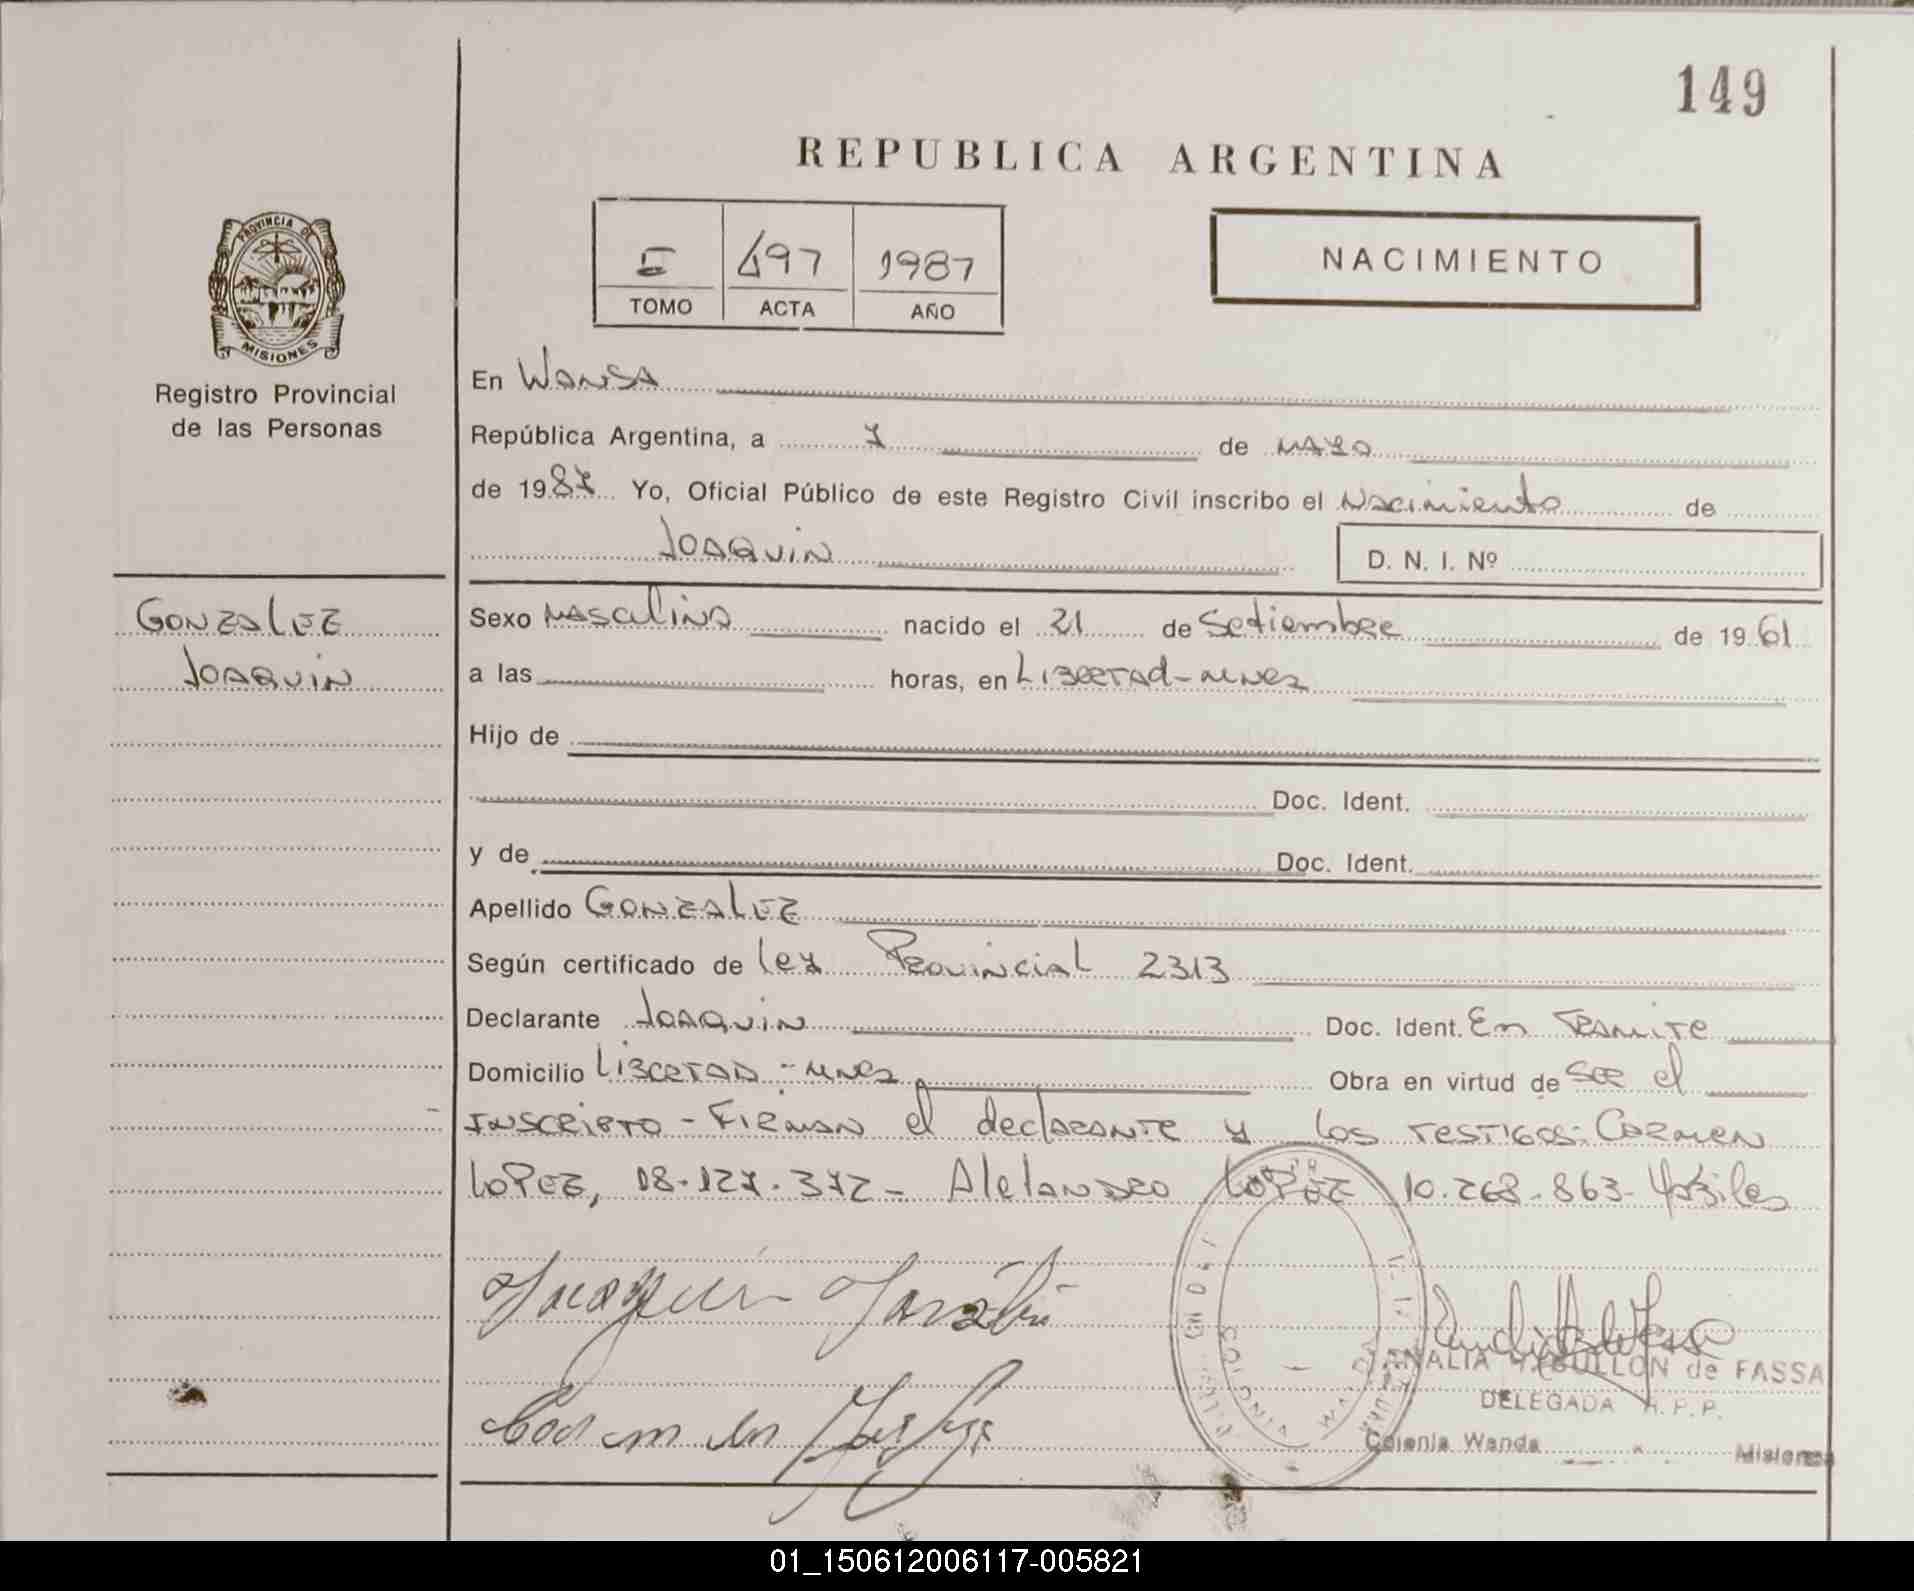 149
REPUBLICA ARGENTINA
PROVINCIA DE
MISIONES
Registro Provincial
de las Personas
I 497 1987
TOMO ACTA AÑO
NACIMIENTO
En WANDA
República Argentina, a 7 de MAYO
de 1987 Yo, Oficial Público de este Registro Civil inscribo el Nacimiento de
JOAQUIN D. N. I. Nº
GONZALEZ
JOAQUIN
Sexo MASCULINO nacido el 21 de Setiembre de 1961
a las horas, en LIBERTAD - MNES
Hijo de
Doc. Ident.
y de Doc. Ident.
Apellido GONZALEZ
Según certificado de Ley Provincial 2313
Declarante JOAQUIN Doc. Ident. En TRAMITE
Domicilio LIBERTAD - MNES Obra en virtud de SER el
INSCRIPTO - FIRMAN el declarANTE y los TESTIGOS: CARMEN
LOPEZ, 18.127.372 - AleJANDRO LOPEZ 10.268.863
Joaquin
Carmen
ANALIA de FASSA
DELEGADA R. P. P.
Colonia Wanda Misiones
01_150612006117-005821